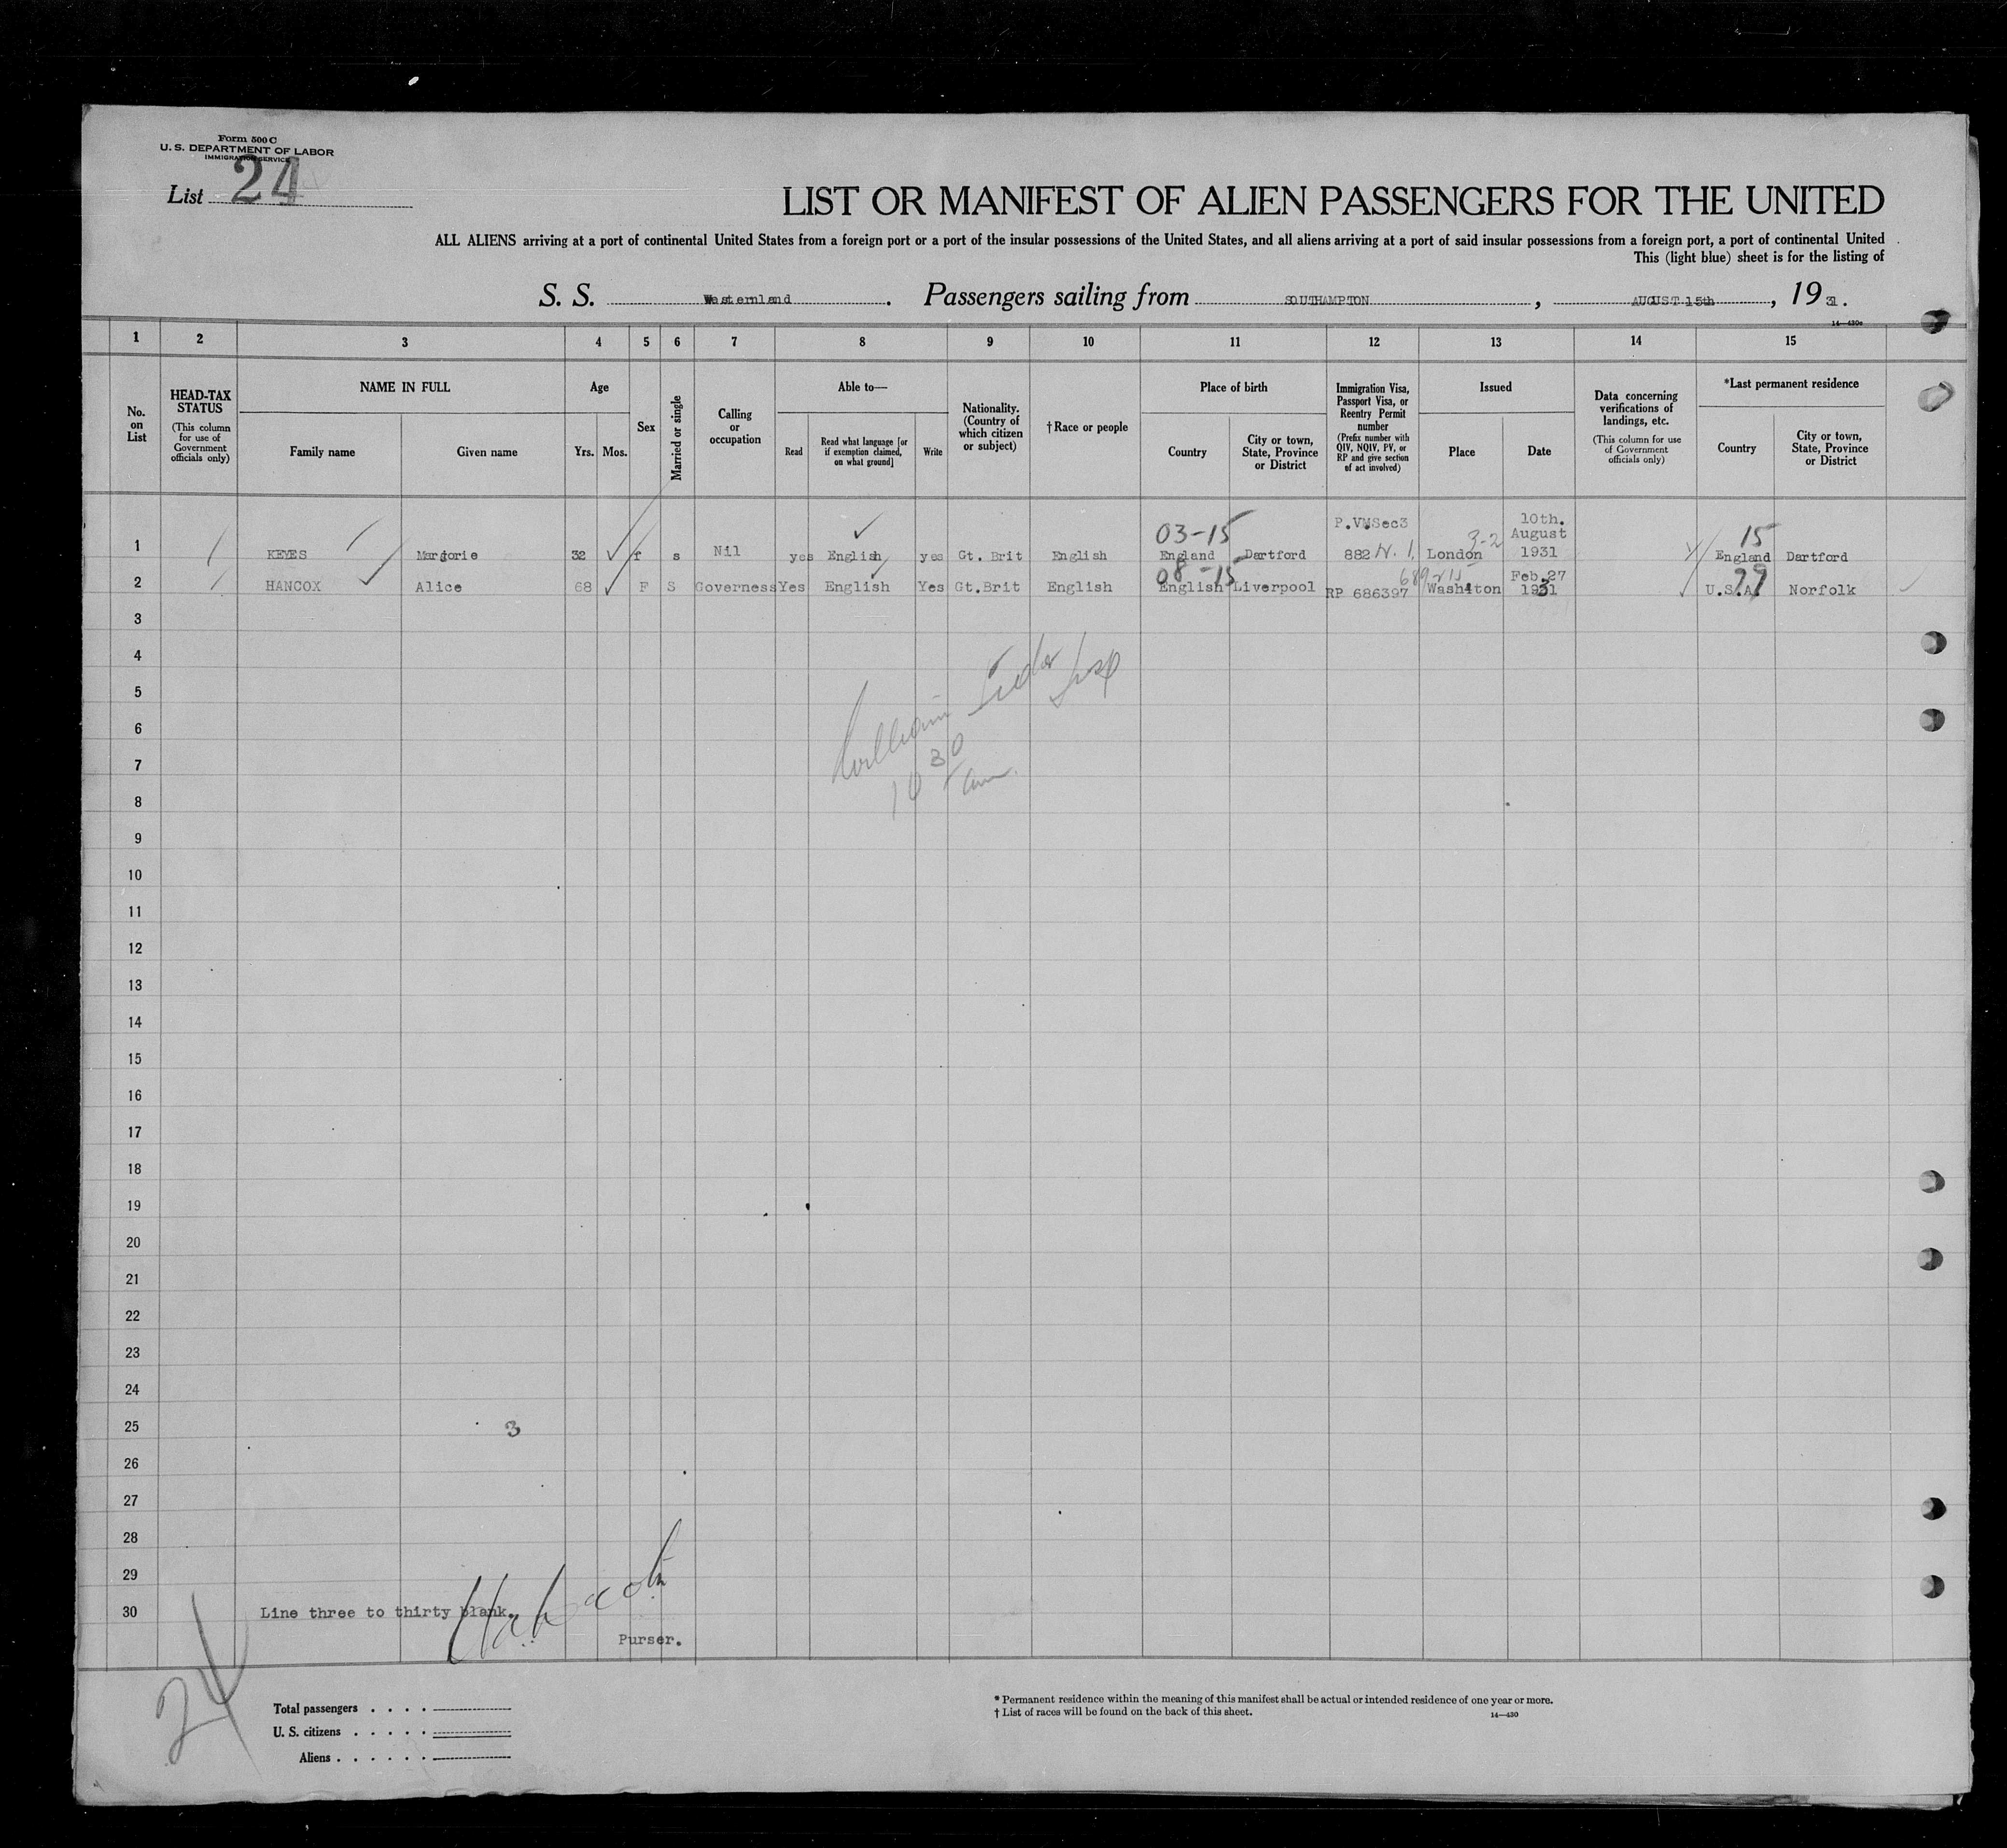 Form 500 C
U. S. DEPARTMENT OF LABOR
IMMIGRATION SERVICE
List 24
LIST OR MANIFEST OF ALIEN PASSENGERS FOR THE UNITED
ALL ALIENS arriving at a port of continental United States from a foreign port or a port of the insular possessions of the United States, and all aliens arriving at a port of said insular possessions from a foreign port, a port of continental United
This (light blue) sheet is for the listing of
S. S. Westernland. Passengers sailing from SOUTHAMPTON, AUGUST 15th, 1931.
14—430c
1 2 3 4 5 6 7 8 9 10 11 12 13 14 15
No. on List
HEAD-TAX STATUS
(This column for use of Government officials only)
NAME IN FULL
Family name
Given name
Age
Yrs. Mos.
Sex
Married or single
Calling or occupation
Able to—
Read
Read what language [or if exemption claimed, on what ground]
Write
Nationality. (Country of which citizen or subject)
†Race or people
Place of birth
Country
City or town, State, Province or District
Immigration Visa, Passport Visa, or Reentry Permit number
(Prefix number with QIV, NQIV, PV, or RP and give section of act involved)
Issued
Place
Date
Data concerning verifications of landings, etc.
(This column for use of Government officials only)
*Last permanent residence
Country
City or town, State, Province or District
03-15 P.V.Sec3 10th. August 15
1 KEYES Marjorie 32 f s Nil yes English yes Gt. Brit English England Dartford 882 London 3-2 1931 England Dartford
08-15 Feb.27 29
2 HANCOX Alice 68 F S Governess Yes English Yes Gt.Brit English English Liverpool RP 686397 Washiton 1931 U.S.A. Norfolk
3
4
5
6
7
10 30 am
8
9
10
11
12
13
14
15
16
17
18
19
20
21
22
23
24
25 3
26
27
28
29
30 Line three to thirty blank.
Purser.
24
Total passengers . . . .
U. S. citizens . . . . .
Aliens . . . . . .
* Permanent residence within the meaning of this manifest shall be actual or intended residence of one year or more.
† List of races will be found on the back of this sheet.
14—430